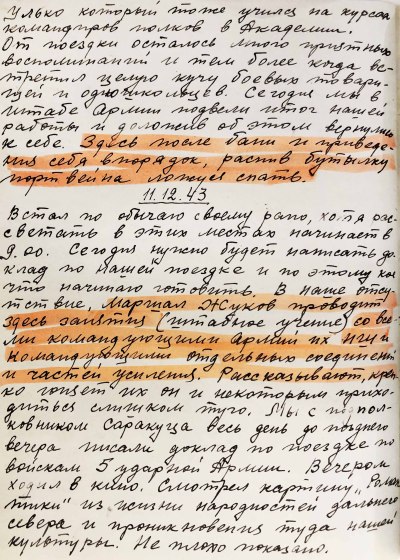 Улько который тоже учился на курсах
командиров полков в Академии.
От поездки осталось много приятных
воспоминаний и тем более когда вс-
третил целую кучу боевых товари-
щей и однокольцев. Сегодня мы в
штабе Армии подвели итог нашей
работы и доложив об этом вернулись
к себе. Здесь после бани и приведе-
ния себя в порядок, распив бутылку
портвейна ложусь спать.
11.12.43
Встал по обычаю своему рано, хотя рас-
светать в этих местах начинает в
9.00. Сегодня нужно будет написать до-
клад по нашей поездке и по этому кое
что начинаю готовить. В наше отсу-
тствие, Маршал Жуков проводит
здесь занятия (штабное учение) со все-
ми командующими Армий их нш и
командующими отдельных соединений
и частей усиления. Рассказывают, креп-
ко гоняет их он и некоторым прихо-
дится слишком туго. Мы с подпол-
ковником Саракуца весь день до позднего
вечера писали доклад по поездке по
войскам 5 ударной Армии. Вечером
ходил в кино. Смотрел картину „Роман-
тики" из жизни народностей дальнего
севера и проникновения туда нашей
культуры. Не плохо показано.